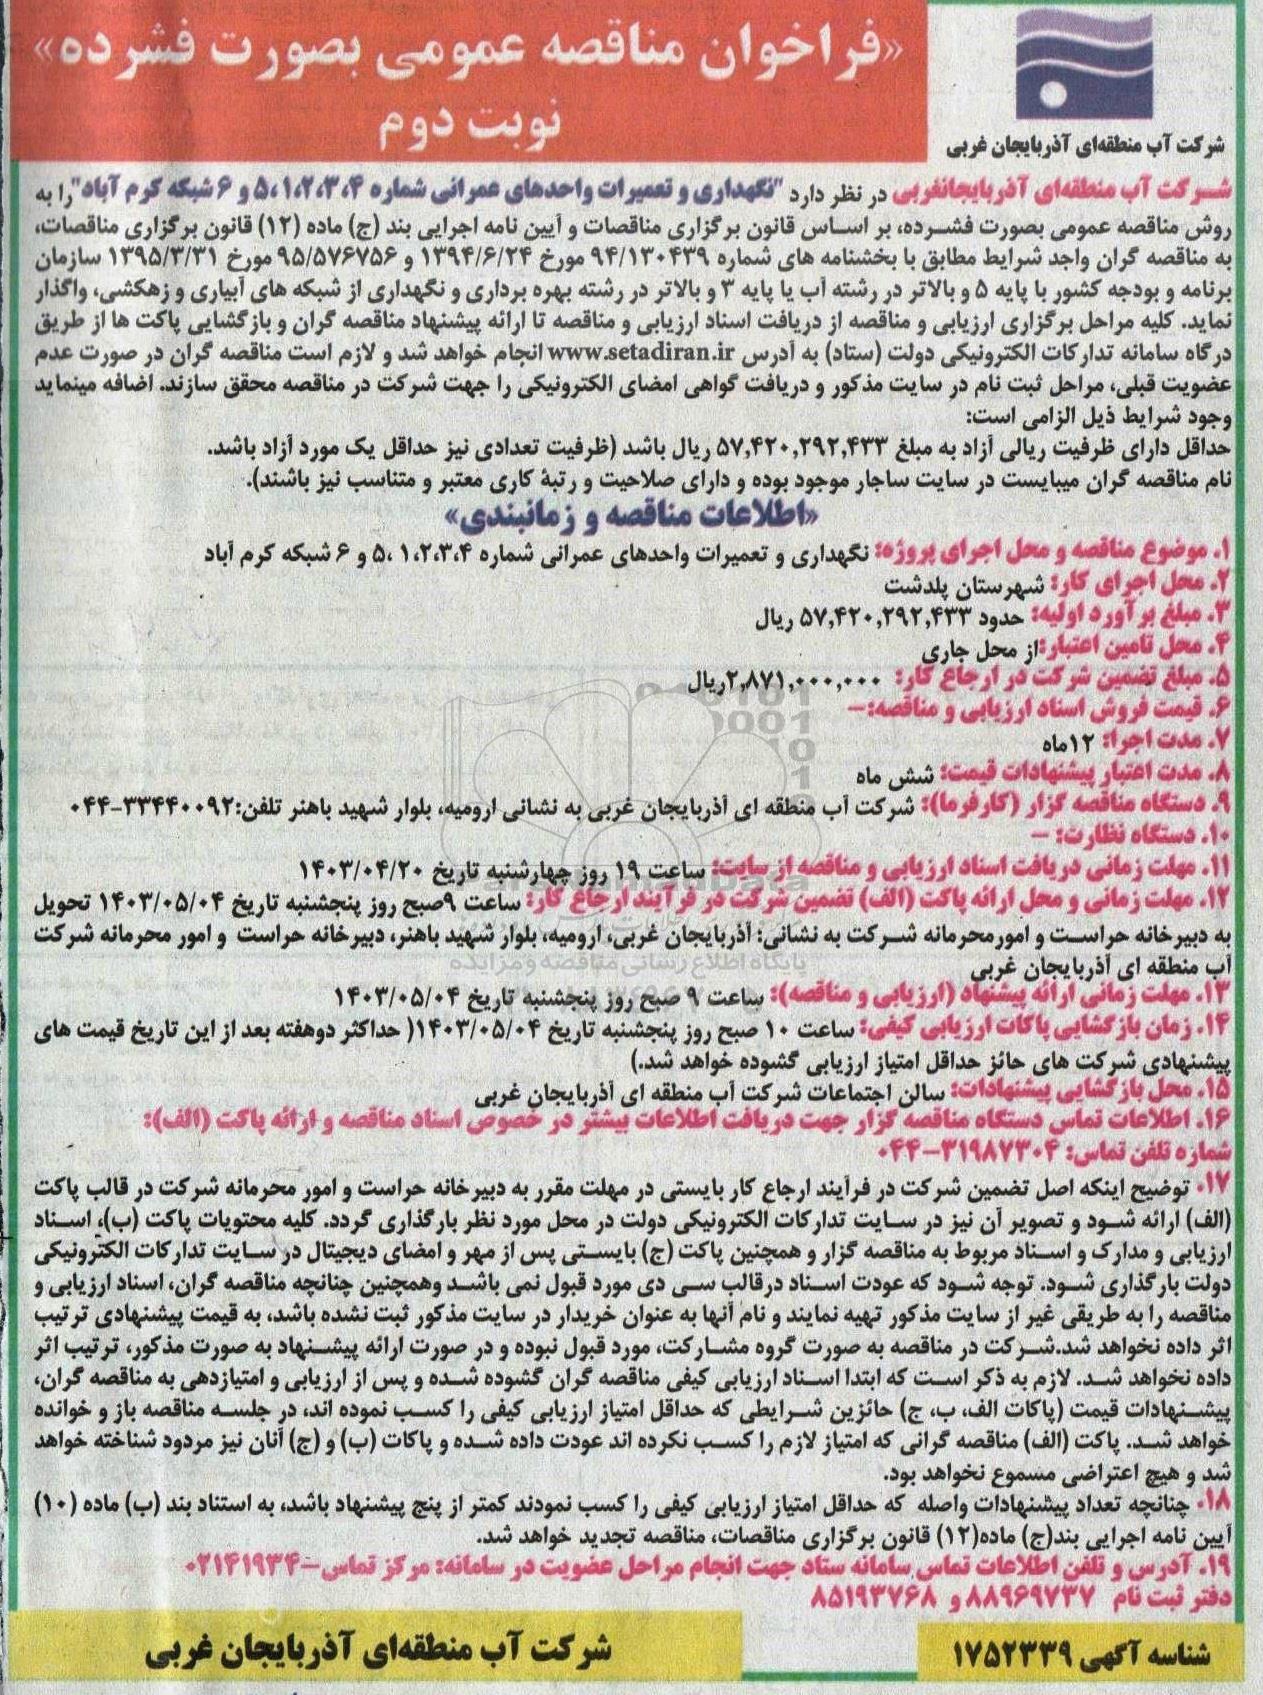 «فراخوان مناقصه عمومی بصورت فشرده»
نوبت دوم
شرکت آب منطقه‌ای آذربایجان غربی
شرکت آب منطقه‌ای آذربایجانغربی در نظر دارد "نگهداری و تعمیرات واحدهای عمرانی شماره ۱،۲،۳،۴، ۵ و ۶ شبکه کرم آباد" را به
روش مناقصه عمومی بصورت فشرده، بر اساس قانون برگزاری مناقصات و آیین نامه اجرایی بند (ج) ماده (۱۲) قانون برگزاری مناقصات،
به مناقصه گران واجد شرایط مطابق با بخشنامه های شماره ۹۴/۱۳۰۴۳۹ مورخ ۱۳۹۴/۶/۲۴ و ۹۵/۵۷۶۷۵۶ مورخ ۱۳۹۵/۳/۳۱ سازمان
برنامه و بودجه کشور با پایه ۵ و بالاتر در رشته آب یا پایه ۳ و بالاتر در رشته بهره برداری و نگهداری از شبکه های آبیاری و زهکشی، واگذار
نماید. کلیه مراحل برگزاری ارزیابی و مناقصه از دریافت اسناد ارزیابی و مناقصه تا ارائه پیشنهاد مناقصه گران و بازگشایی پاکت ها از طریق
درگاه سامانه تدارکات الکترونیکی دولت (ستاد) به آدرس www.setadiran.ir انجام خواهد شد و لازم است مناقصه گران در صورت عدم
عضویت قبلی، مراحل ثبت نام در سایت مذکور و دریافت گواهی امضای الکترونیکی را جهت شرکت در مناقصه محقق سازند. اضافه مینماید
وجود شرایط ذیل الزامی است:
حداقل دارای ظرفیت ریالی آزاد به مبلغ ۵۷,۴۲۰,۲۹۲,۴۳۳ ریال باشد (ظرفیت تعدادی نیز حداقل یک مورد آزاد باشد.
نام مناقصه گران میبایست در سایت ساجار موجود بوده و دارای صلاحیت و رتبۀ کاری معتبر و متناسب نیز باشند).
«اطلاعات مناقصه و زمانبندی»
۱. موضوع مناقصه و محل اجرای پروژه: نگهداری و تعمیرات واحدهای عمرانی شماره ۱،۲،۳،۴، ۵ و ۶ شبکه کرم آباد
۲. محل اجرای کار: شهرستان پلدشت
۳. مبلغ برآورد اولیه: حدود ۵۷,۴۲۰,۲۹۲,۴۳۳ ریال
۴. محل تامین اعتبار: از محل جاری
۵. مبلغ تضمین شرکت در ارجاع کار: ۲,۸۷۱,۰۰۰,۰۰۰ریال
۶. قیمت فروش اسناد ارزیابی و مناقصه:-
۷. مدت اجرا: ۱۲ماه
۸. مدت اعتبار پیشنهادات قیمت: شش ماه
۹. دستگاه مناقصه گزار (کارفرما): شرکت آب منطقه ای آذربایجان غربی به نشانی ارومیه، بلوار شهید باهنر تلفن:۳۳۴۴۰۰۹۲-۰۴۴
۱۰. دستگاه نظارت: -
۱۱. مهلت زمانی دریافت اسناد ارزیابی و مناقصه از سایت: ساعت ۱۹ روز چهارشنبه تاریخ ۱۴۰۳/۰۴/۲۰
۱۲. مهلت زمانی و محل ارائه پاکت (الف) تضمین شرکت در فرآیند ارجاع کار: ساعت ۹صبح روز پنجشنبه تاریخ ۱۴۰۳/۰۵/۰۴ تحویل
به دبیرخانه حراست و امورمحرمانه شرکت به نشانی: آذربایجان غربی، ارومیه، بلوار شهید باهنر، دبیرخانه حراست و امور محرمانه شرکت
آب منطقه ای آذربایجان غربی
پایگاه اطلاع رسانی مناقصه و مزایده
۱۳. مهلت زمانی ارائه پیشنهاد (ارزیابی و مناقصه): ساعت ۹ صبح روز پنجشنبه تاریخ ۱۴۰۳/۰۵/۰۴
۱۴. زمان بازگشایی پاکات ارزیابی کیفی: ساعت ۱۰ صبح روز پنجشنبه تاریخ ۱۴۰۳/۰۵/۰۴( حداکثر دوهفته بعد از این تاریخ قیمت های
پیشنهادی شرکت های حائز حداقل امتیاز ارزیابی گشوده خواهد شد.)
۱۵. محل بازگشایی پیشنهادات: سالن اجتماعات شرکت آب منطقه ای آذربایجان غربی
۱۶. اطلاعات تماس دستگاه مناقصه گزار جهت دریافت اطلاعات بیشتر در خصوص اسناد مناقصه و ارائه پاکت (الف):
شماره تلفن تماس: ۳۱۹۸۷۳۰۴-۰۴۴
۱۷. توضیح اینکه اصل تضمین شرکت در فرآیند ارجاع کار بایستی در مهلت مقرر به دبیرخانه حراست و امور محرمانه شرکت در قالب پاکت
(الف) ارائه شود و تصویر آن نیز در سایت تدارکات الکترونیکی دولت در محل مورد نظر بارگذاری گردد. کلیه محتویات پاکت (ب)، اسناد
ارزیابی و مدارک و اسناد مربوط به مناقصه گزار و همچنین پاکت (ج) بایستی پس از مهر و امضای دیجیتال در سایت تدارکات الکترونیکی
دولت بارگذاری شود. توجه شود که عودت اسناد درقالب سی دی مورد قبول نمی باشد وهمچنین چنانچه مناقصه گران، اسناد ارزیابی و
مناقصه را به طریقی غیر از سایت مذکور تهیه نمایند و نام آنها به عنوان خریدار در سایت مذکور ثبت نشده باشد، به قیمت پیشنهادی ترتیب
اثر داده نخواهد شد.شرکت در مناقصه به صورت گروه مشارکت، مورد قبول نبوده و در صورت ارائه پیشنهاد به صورت مذکور، ترتیب اثر
داده نخواهد شد. لازم به ذکر است که ابتدا اسناد ارزیابی کیفی مناقصه گران گشوده شده و پس از ارزیابی و امتیازدهی به مناقصه گران،
پیشنهادات قیمت (پاکات الف، ب، ج) حائزین شرایطی که حداقل امتیاز ارزیابی کیفی را کسب نموده اند، در جلسه مناقصه باز و خوانده
خواهد شد. پاکت (الف) مناقصه گرانی که امتیاز لازم را کسب نکرده اند عودت داده شده و پاکات (ب) و (ج) آنان نیز مردود شناخته خواهد
شد و هیچ اعتراضی مسموع نخواهد بود.
۱۸. چنانچه تعداد پیشنهادات واصله که حداقل امتیاز ارزیابی کیفی را کسب نمودند کمتر از پنج پیشنهاد باشد، به استناد بند (ب) ماده (۱۰)
آیین نامه اجرایی بند(ج) ماده(۱۲) قانون برگزاری مناقصات، مناقصه تجدید خواهد شد.
۱۹. آدرس و تلفن اطلاعات تماس سامانه ستاد جهت انجام مراحل عضویت در سامانه: مرکز تماس-۰۲۱۴۱۹۳۴
دفتر ثبت نام ۸۸۹۶۹۷۳۷ و ۸۵۱۹۳۷۶۸
شناسه آگهی ۱۷۵۲۳۳۹
شرکت آب منطقه‌ای آذربایجان غربی